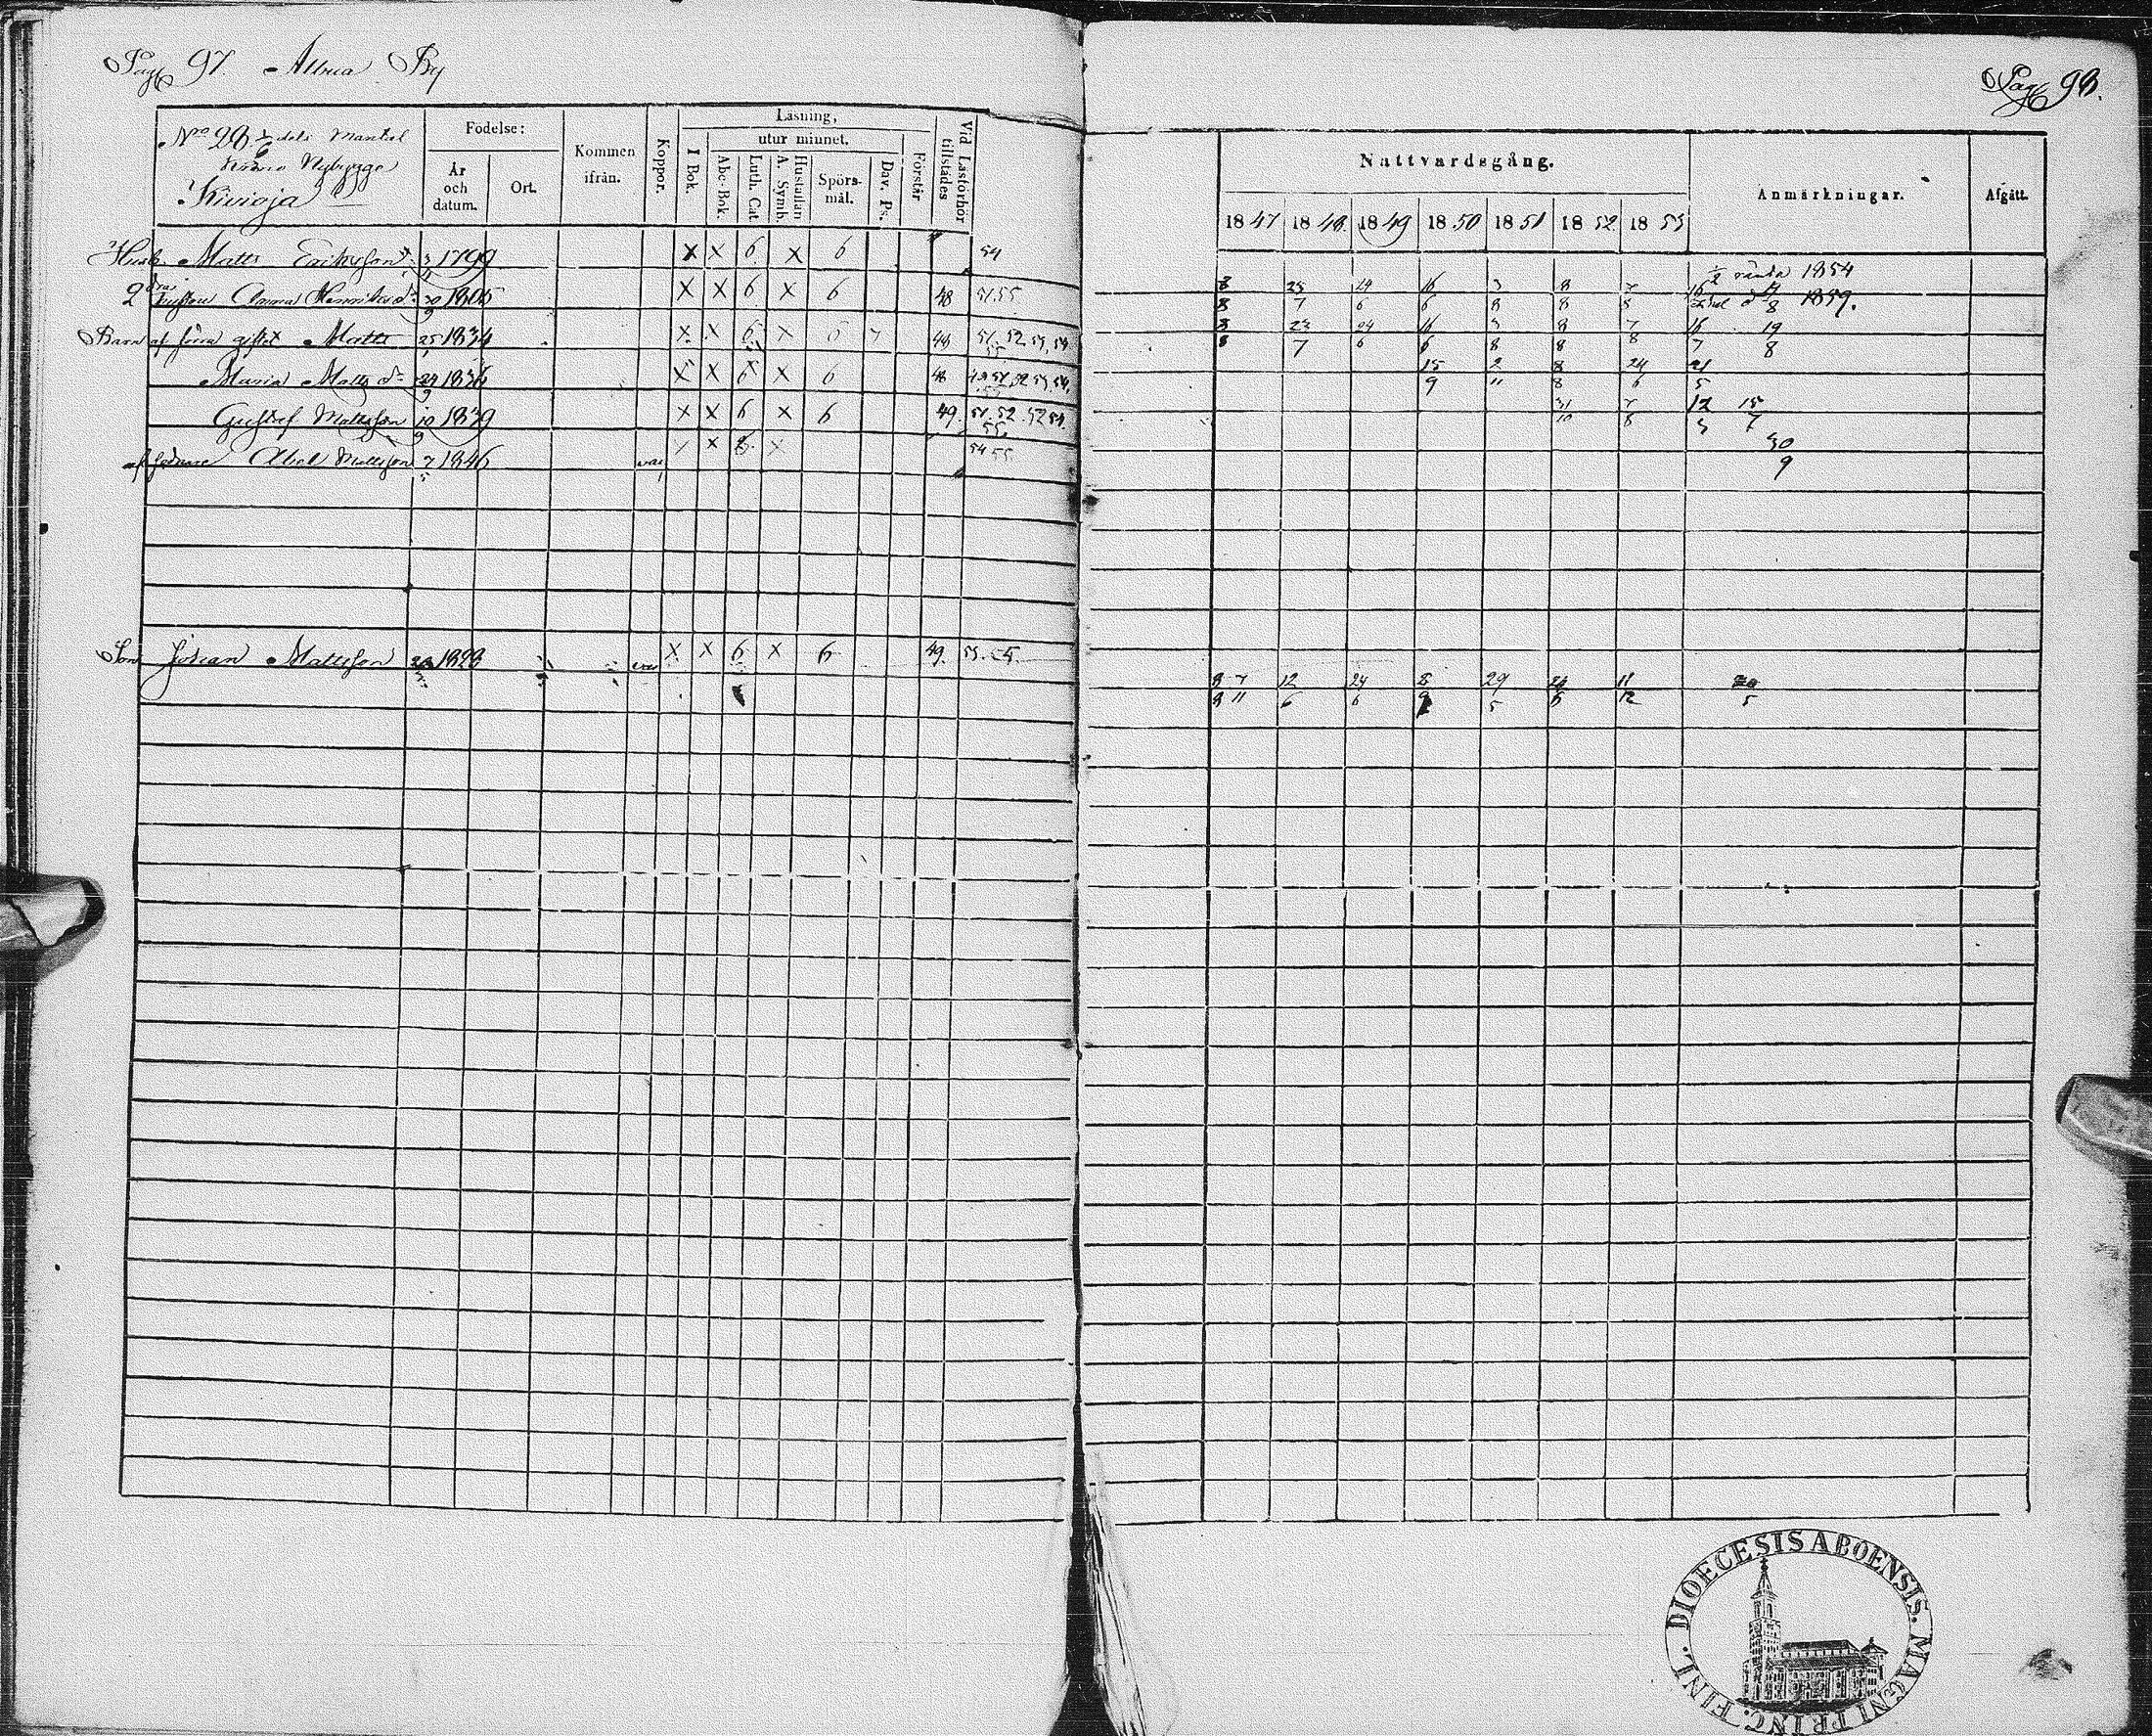 Pag 97. By
No 28 dels Mantal
Krono Nybygge
Kivioja
Födelse:
År och datum.
Ort.
Kommen ifrån.
Koppor.
Läsning,
I Bok.
utur minnet.
Abc-Bok.
Luth. Cat.
Hustaflan A. Symb.
Spörsmål.
Dav. Ps.
Förstår
Vid Läsförhör tillstädes
Matts Eriksson 1799 X X 6 X 6 54
2 dra hustru Anna 30/9 1805 X X 6 X 6 48 51.55
Barn af förra giftet Matts 25/1 1834 X X 6 X 48 51.52.53.54. 55
Maria Matts dr 1836 X X 6 X 6 48
Gustaf Mattsson 10/9 1839 X X 6 X 6 49. 51.52.53.54. 55.
af sednare Abel Mattsson 7/5 1846 vac X X 6 X 54 55
Son Johan Mattsson 1828 vac X X 6 X 6 49.
Pag 98.
Nattvardsgång.
Anmärkningar.
Afgått.
1847 1848 1849 1850 1851 1852 1853
8 25 24 16 3 8 7 1854
8 7 6 6 8 8 8 1859.
8 23 24 16 3 8 7 16 19
8 7 6 6 8 8 8 7 8
15 2 8 24 21
9 11 8 6 5
31 7 12 15
10 8 3 7
30
9
8 7 12 24 8 29 24 11
8 11 6 6 9 5 6 12 5
DIOECESIS ABOENSIS. MAGNI PRINC. FINL.